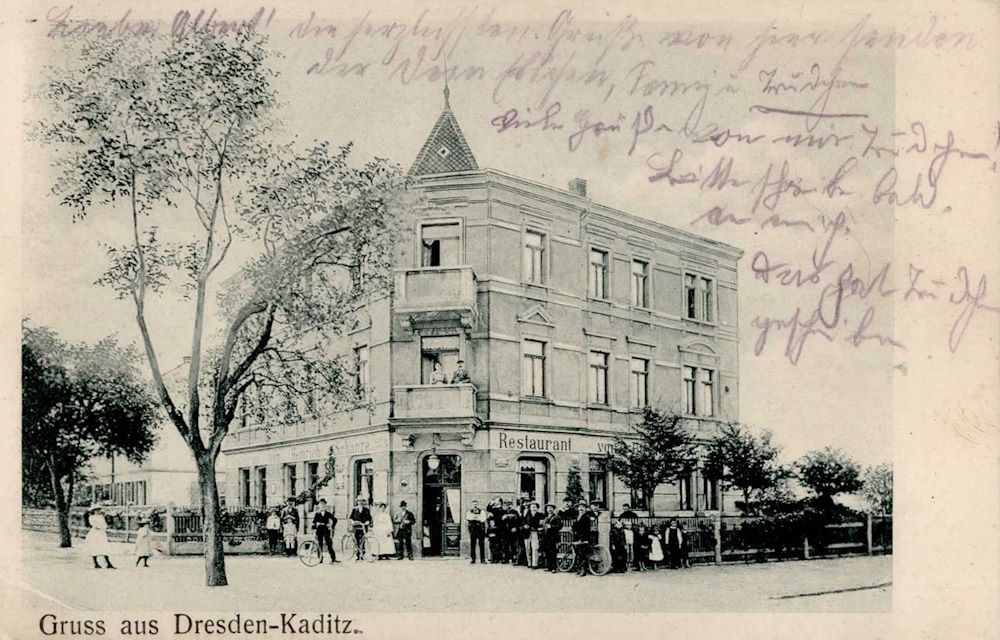 Liebe Albert! die herzlichsten Grüße von hier senden
dir Dein Elschen, Fanny u. Trudchen
viele Grüße von mir Trudchen!
Bitte schreibe bald
an mich.
Das hat Trudchen
geschrieben
Heinrich Schanze
Restaurant von
Gruss aus Dresden-Kaditz.